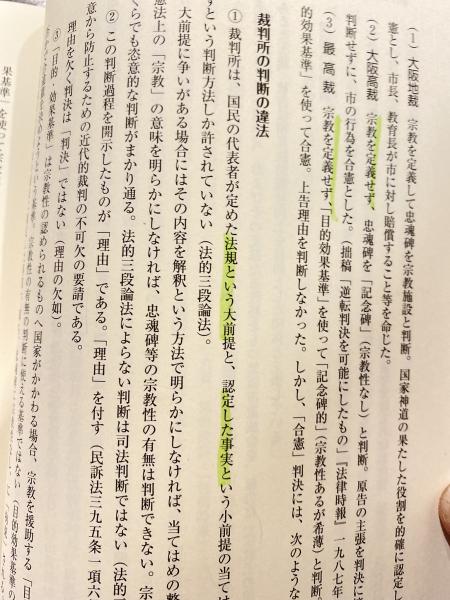 (1) 大阪地裁 宗教を定義して忠魂碑を宗教施設と判断。国家神道の果たした役割を的確に認定し
憲とし、市長、教育長が市に対し賠償すること等を命じた。
(2) 大阪高裁 宗教を定義せず、忠魂碑を「記念碑」(宗教性なし)と判断。原告の主張を判決に
判断せずに、市の行為を合憲とした。(拙稿「逆転判決を可能にしたもの」『法律時報』一九八七年
(3) 最高裁 宗教を定義せず、「目的効果基準」を使って「記念碑的」(宗教性あるが希薄)と判断
的効果基準」を使って合憲。上告理由を判断しなかった。しかし、「合憲」判決には、次のような
裁判所の判断の違法
① 裁判所は、国民の代表者が定めた法規という大前提と、認定した事実という小前提の当ては
すという判断方法しか許されていない(法的三段論法)。
大前提に争いがある場合にはその内容を解釈という方法で明らかにしなければ、当てはめの整
憲法上の「宗教」の意味を明らかにしなければ、忠魂碑等の宗教性の有無は判断できない。宗
くらでも恣意的な判断がまかり通る。法的三段論法によらない判断は司法判断ではない(法的三
② この判断過程を開示したものが「理由」である。「理由」を付す(民訴法三九五条一項六
意から防止するための近代的裁判の不可欠の要請である。
理由を欠く判決は「判決」ではない(理由の欠如)。
③「目的・効果基準」は宗教性の認められるものへ国家がかかわる場合、宗教を援助する「目
宗教性の有無の判断に使える基準ではない(目的効果基準の
果基準」を使って